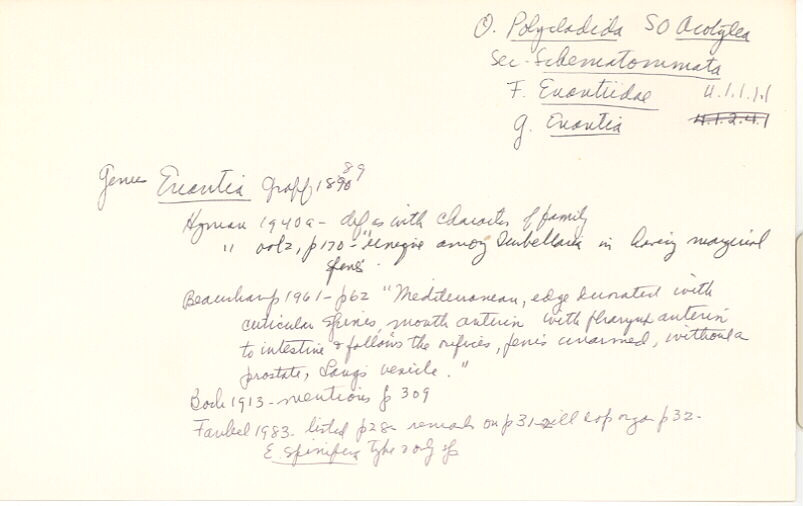 O. Polycladida SO Acotylea
Sec. Schematommata
F. Enantiidae 4.1.1.1.1
g. Enantia 4.1.2.4.1
Genus Enantia Graff 1890 89
Hyman 1940a - def as with characters of family
" vol 2, p170 - "unique among Turbellaria in having marginal
spines"
Beauchamp 1961 - p62 "Mediterranean, edge serrated with
cuticular spines, mouth anterior with pharynx anterior
to intestine & follows the orifices, penis unarmed, without a
prostate, Lang's vesicle."
Bock 1913 - mentions p 309
Faubel 1983 - listed p28 - remarks on p31 - ill cop organ p32 -
E. spinifera type & only sp